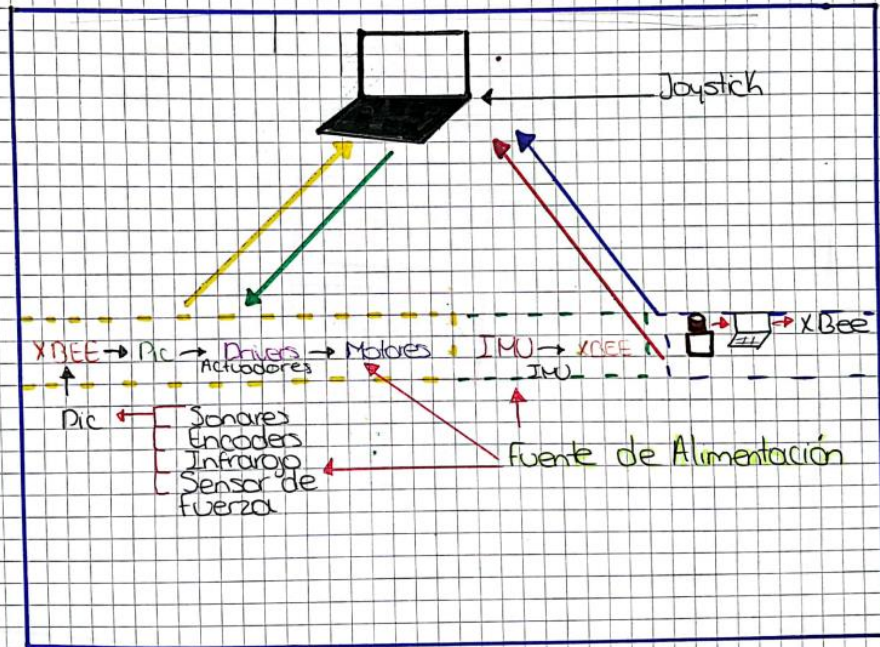 Joystick
XBEE → Pic → Drivers → Motores
Actuadores
IMU → XBEE
IMU
XBee
Pic
Sonares
Encoders
Infrarojo
Sensor de
fuerza
Fuente de Alimentación